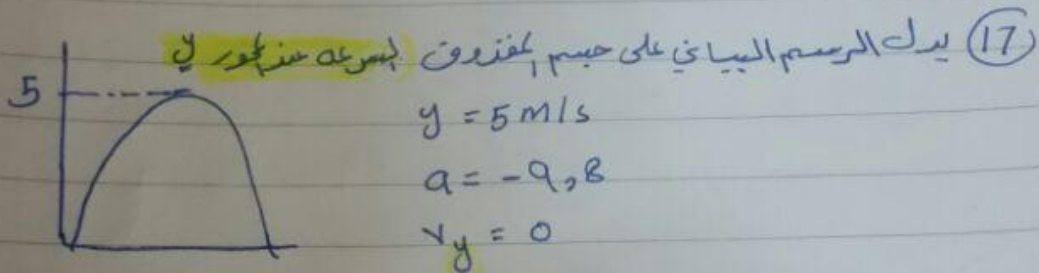 17 يدل الرسم البياني على جسم مقذوف السرعة عند محور y
5
y = 5 m/s
a = -9,8
vy = 0